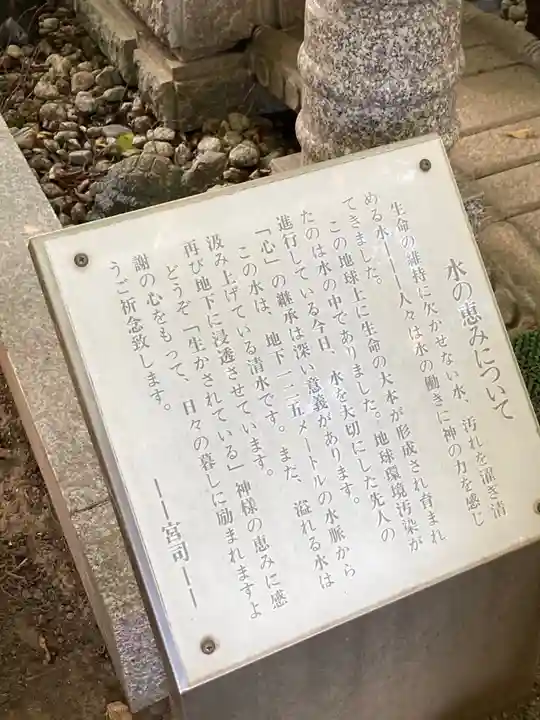 水の恵みについて
生命の維持に欠かせない水、汚れを濯ぎ清
める水――人々は水の働きに神の力を感じ
てきました。
この地球上に生命の大本が形成され育まれ
たのは水の中でありました。地球環境汚染が
進行している今日、水を大切にした先人の
「心」の継承は深い意義があります。
この水は、地下一二五メートルの水脈から
汲み上げている清水です。また、溢れる水は
再び地下に浸透させています。
どうぞ「生かされている」神様の恵みに感
謝の心をもって、日々の暮しに励まれますよ
うご祈念致します。
――宮司――